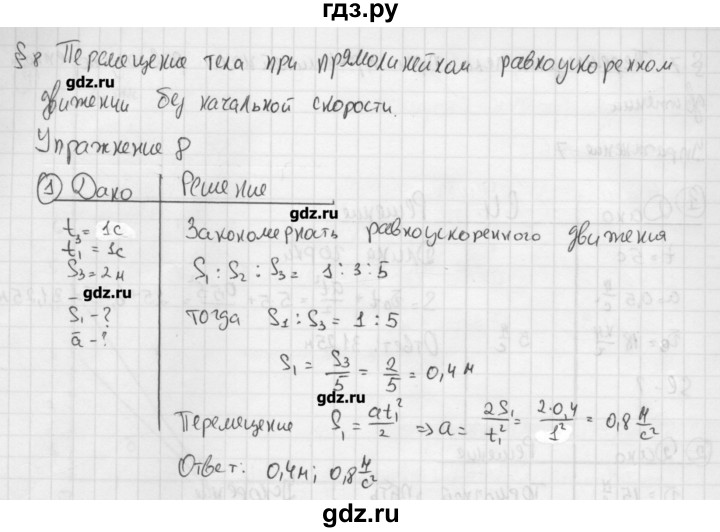 гдз.ру
§ 8 Перемещение тела при прямолинейном равноускоренном
gdz.ru
движении без начальной скорости.
Упражнение 8
gdz.ru
① Дано Решение
gdz.ru
t₃ = 1с Закономерность равноускоренного движения
t₁ = 1с
S₃ = 2м S₁ : S₂ : S₃ = 1 : 3 : 5
gdz.ru
S₁ - ? тогда S₁ : S₃ = 1 : 5
a - ?
S₁ = S₃/5 = 2/5 = 0,4 м
gdz.ru
Перемещение S₁ = at₁²/2 ⇒ a = 2S₁/t₁² = 2·0,4/1² = 0,8 м/с²
Ответ: 0,4м; 0,8 м/с²
gdz.ru
гдз.ру